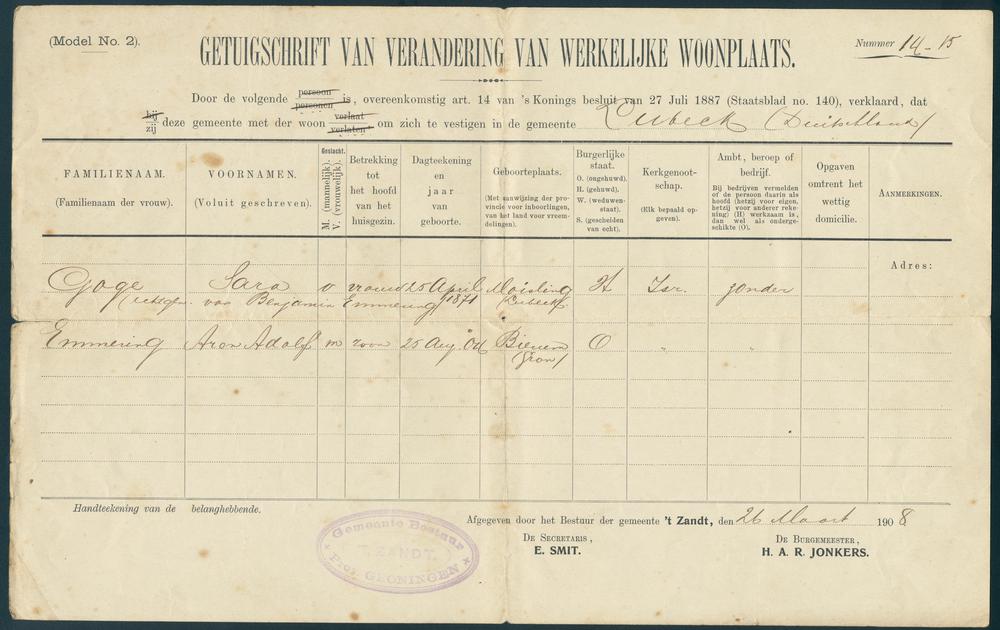 (Model No. 2).
GETUIGSCHRIFT VAN VERANDERING VAN WERKELIJKE WOONPLAATS.
Nummer 14-15
Door de volgende persoon personen is, overeenkomstig art. 14 van 's Konings besluit van 27 Juli 1887 (Staatsblad no. 140), verklaard, dat
hij zij deze gemeente met der woon verlaat verlaten om zich te vestigen in de gemeente Lubeck (Duitschland)
FAMILIENAAM.
(Familienaam der vrouw).
VOORNAMEN.
(Voluit geschreven).
Geslacht.
M. (mannelijk).
V. (vrouwelijk).
Betrekking
tot
het hoofd
van het
huisgezin.
Dagteekening
en
jaar
van
geboorte.
Geboorteplaats.
(Met aanwijzing der pro-
vincie voor inboorlingen,
van het land voor vreem-
delingen).
Burgerlijke
staat.
O. (ongehuwd).
H. (gehuwd).
W. (weduwen-
staat).
S. (gescheiden
van echt).
Kerkgenoot-
schap.
(Elk bepaald op-
geven).
Ambt, beroep of
bedrijf.
Bij bedrijven vermelden
of de persoon daarin als
hoofd (hetzij voor eigen,
hetzij voor anderer reke-
ning) (H) werkzaam is,
dan wel als onderge-
schikte (O).
Opgaven
omtrent het
wettig
domicilie.
AANMERKINGEN.
Adres:
Goge Sara v vrouw 25 April 1871 Moisling (Lubeck) H Isr. zonder
van Benjamin Emmering
Emmering Aron Adolf m zoon 25 Aug. 04 Bierum (Gron) O „ „
Handteekening van de belanghebbende.
Gemeente Bestuur
'T ZANDT.
Prov. GRONINGEN
Afgegeven door het Bestuur der gemeente 't Zandt, den 26 Maart 1908
DE SECRETARIS,
E. SMIT.
DE BURGEMEESTER,
H. A. R. JONKERS.